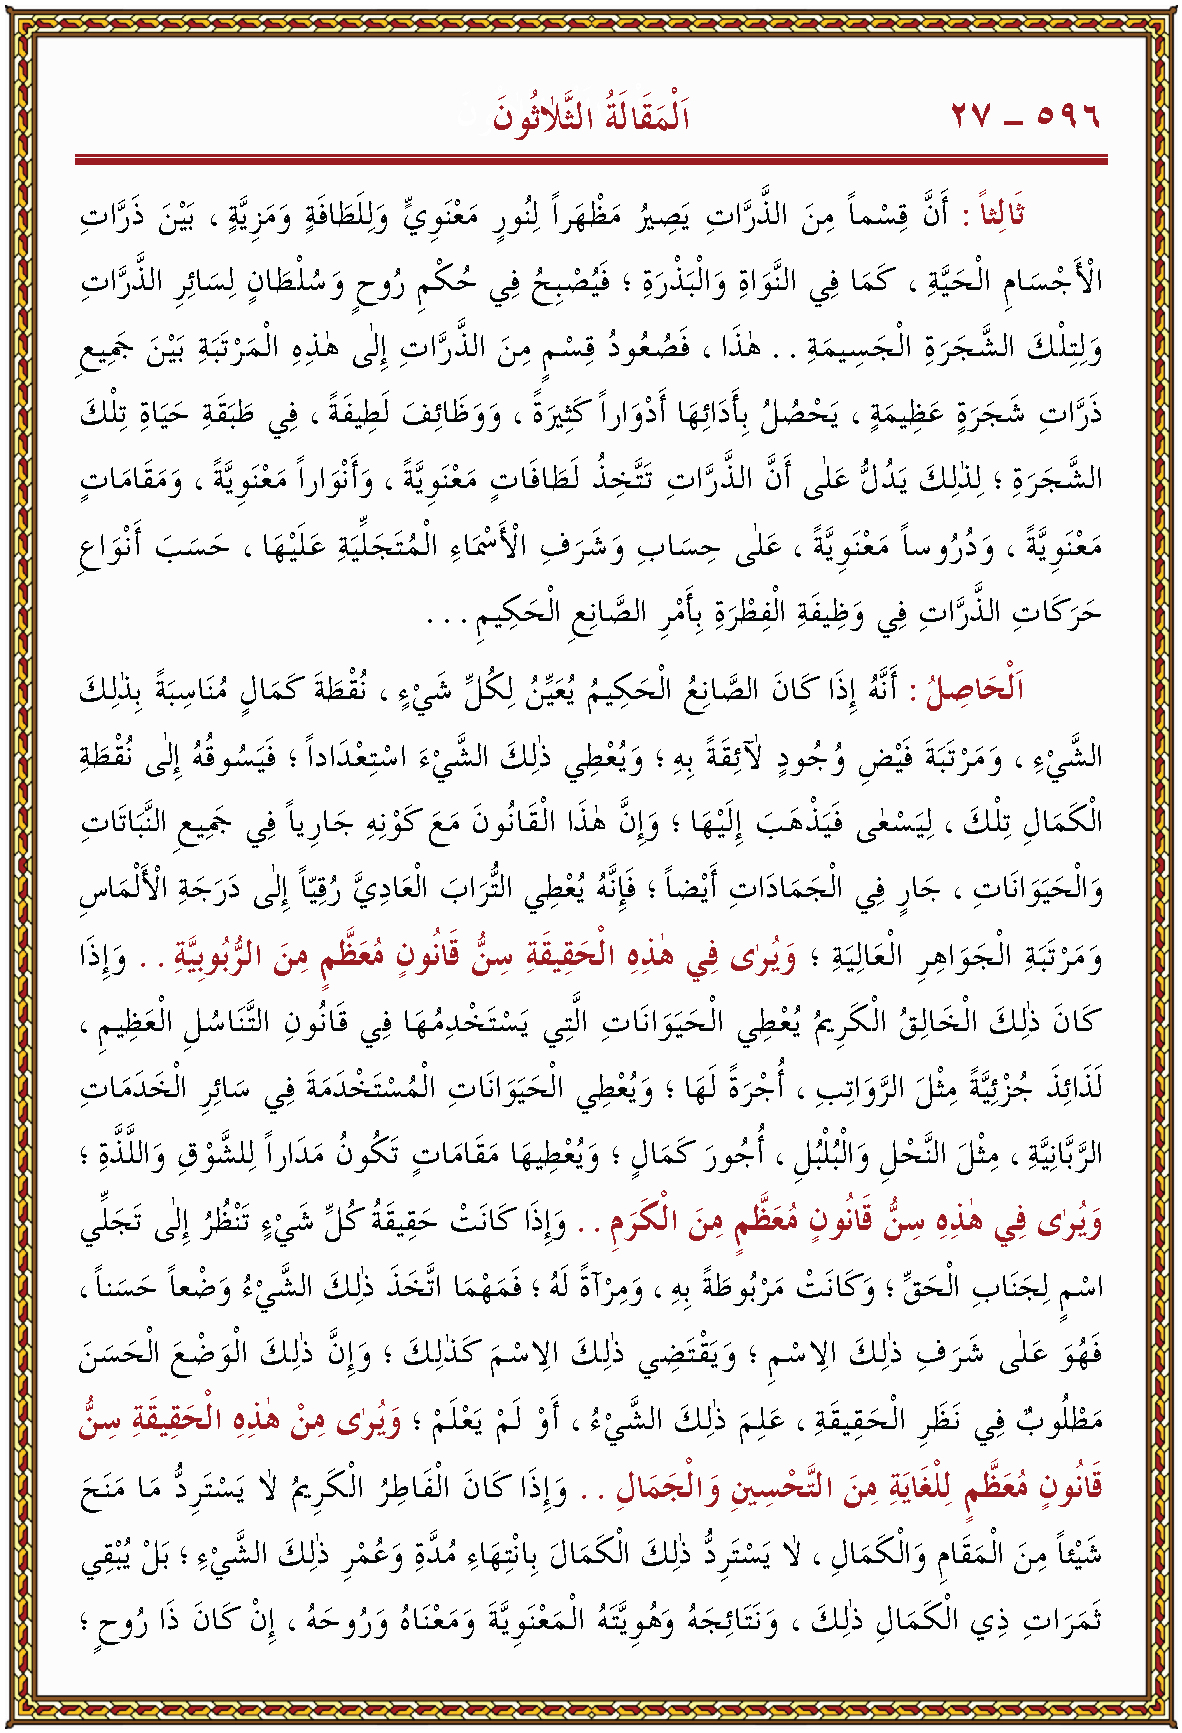 ٥٩٦ ــ ٢٧ اَلْمَقَالَةُ الثَّلاٰثُونَ
ثَالِثاً : أَنَّ قِسْماً مِنَ الذَّرَّاتِ يَصِيرُ مَظْهَراً لِنُورٍ مَعْنَوِيٍّ وَلِلَطَافَةٍ وَمَزِيَّةٍ ، بَيْنَ ذَرَّاتِ
الْأَجْسَامِ الْحَيَّةِ ، كَمَا فِي النَّوَاةِ وَالْبَذْرَةِ ؛ فَيُصْبِحُ فِي حُكْمِ رُوحٍ وَسُلْطَانٍ لِسَائِرِ الذَّرَّاتِ
وَلِتِلْكَ الشَّجَرَةِ الْجَسِيمَةِ . . هٰذَا ، فَصُعُودُ قِسْمٍ مِنَ الذَّرَّاتِ إِلٰى هٰذِهِ الْمَرْتَبَةِ بَيْنَ جَمِيعِ
ذَرَّاتِ شَجَرَةٍ عَظِيمَةٍ ، يَحْصُلُ بِأَدَائِهَا أَدْوَاراً كَثِيرَةً ، وَوَظَائِفَ لَطِيفَةً ، فِي طَبَقَةِ حَيَاةِ تِلْكَ
الشَّجَرَةِ ؛ لِذٰلِكَ يَدُلُّ عَلٰى أَنَّ الذَّرَّاتِ تَتَّخِذُ لَطَافَاتٍ مَعْنَوِيَّةً ، وَأَنْوَاراً مَعْنَوِيَّةً ، وَمَقَامَاتٍ
مَعْنَوِيَّةً ، وَدُرُوساً مَعْنَوِيَّةً ، عَلٰى حِسَابِ وَشَرَفِ الْأَسْمَاءِ الْمُتَجَلِّيَةِ عَلَيْهَا ، حَسَبَ أَنْوَاعِ
حَرَكَاتِ الذَّرَّاتِ فِي وَظِيفَةِ الْفِطْرَةِ بِأَمْرِ الصَّانِعِ الْحَكِيمِ . . .
اَلْحَاصِلُ : أَنَّهُ إِذَا كَانَ الصَّانِعُ الْحَكِيمُ يُعَيِّنُ لِكُلِّ شَيْءٍ ، نُقْطَةَ كَمَالٍ مُنَاسِبَةً بِذٰلِكَ
الشَّيْءِ ، وَمَرْتَبَةَ فَيْضِ وُجُودٍ لاٰئِقَةً بِهِ ؛ وَيُعْطِي ذٰلِكَ الشَّيْءَ اسْتِعْدَاداً ؛ فَيَسُوقُهُ إِلٰى نُقْطَةِ
الْكَمَالِ تِلْكَ ، لِيَسْعٰى فَيَذْهَبَ إِلَيْهَا ؛ وَإِنَّ هٰذَا الْقَانُونَ مَعَ كَوْنِهِ جَارِياً فِي جَمِيعِ النَّبَاتَاتِ
وَالْحَيَوَانَاتِ ، جَارٍ فِي الْجَمَادَاتِ أَيْضاً ؛ فَإِنَّهُ يُعْطِي التُّرَابَ الْعَادِيَّ رُقِيّاً إِلٰى دَرَجَةِ الْأَلْمَاسِ
وَمَرْتَبَةِ الْجَوَاهِرِ الْعَالِيَةِ ؛ وَيُرٰى فِي هٰذِهِ الْحَقِيقَةِ سِنُّ قَانُونٍ مُعَظَّمٍ مِنَ الرُّبُوبِيَّةِ . . وَإِذَا
كَانَ ذٰلِكَ الْخَالِقُ الْكَرِيمُ يُعْطِي الْحَيَوَانَاتِ الَّتِي يَسْتَخْدِمُهَا فِي قَانُونِ التَّنَاسُلِ الْعَظِيمِ ،
لَذَائِذَ جُزْئِيَّةً مِثْلَ الرَّوَاتِبِ ، أُجْرَةً لَهَا ؛ وَيُعْطِي الْحَيَوَانَاتِ الْمُسْتَخْدَمَةَ فِي سَائِرِ الْخَدَمَاتِ
الرَّبَّانِيَّةِ ، مِثْلَ النَّحْلِ وَالْبُلْبُلِ ، أُجُورَ كَمَالٍ ؛ وَيُعْطِيهَا مَقَامَاتٍ تَكُونُ مَدَاراً لِلشَّوْقِ وَاللَّذَّةِ ؛
وَيُرٰى فِي هٰذِهِ سِنُّ قَانُونٍ مُعَظَّمٍ مِنَ الْكَرَمِ . . وَإِذَا كَانَتْ حَقِيقَةُ كُلِّ شَيْءٍ تَنْظُرُ إِلٰى تَجَلِّي
اسْمٍ لِجَنَابِ الْحَقِّ ؛ وَكَانَتْ مَرْبُوطَةً بِهِ ، وَمِرْآةً لَهُ ؛ فَمَهْمَا اتَّخَذَ ذٰلِكَ الشَّيْءُ وَضْعاً حَسَناً ،
فَهُوَ عَلٰى شَرَفِ ذٰلِكَ الِاسْمِ ؛ وَيَقْتَضِي ذٰلِكَ الِاسْمَ كَذٰلِكَ ؛ وَإِنَّ ذٰلِكَ الْوَضْعَ الْحَسَنَ
مَطْلُوبٌ فِي نَظَرِ الْحَقِيقَةِ ، عَلِمَ ذٰلِكَ الشَّيْءُ ، أَوْ لَمْ يَعْلَمْ ؛ وَيُرٰى مِنْ هٰذِهِ الْحَقِيقَةِ سِنُّ
قَانُونٍ مُعَظَّمٍ لِلْغَايَةِ مِنَ التَّحْسِينِ وَالْجَمَالِ . . وَإِذَا كَانَ الْفَاطِرُ الْكَرِيمُ لاٰ يَسْتَرِدُّ مَا مَنَحَ
شَيْئاً مِنَ الْمَقَامِ وَالْكَمَالِ ، لاٰ يَسْتَرِدُّ ذٰلِكَ الْكَمَالَ بِانْتِهَاءِ مُدَّةِ وَعُمْرِ ذٰلِكَ الشَّيْءِ ؛ بَلْ يُبْقِي
ثَمَرَاتِ ذِي الْكَمَالِ ذٰلِكَ ، وَنَتَائِجَهُ وَهُوِيَّتَهُ الْمَعْنَوِيَّةَ وَمَعْنَاهُ وَرُوحَهُ ، إِنْ كَانَ ذَا رُوحٍ ؛